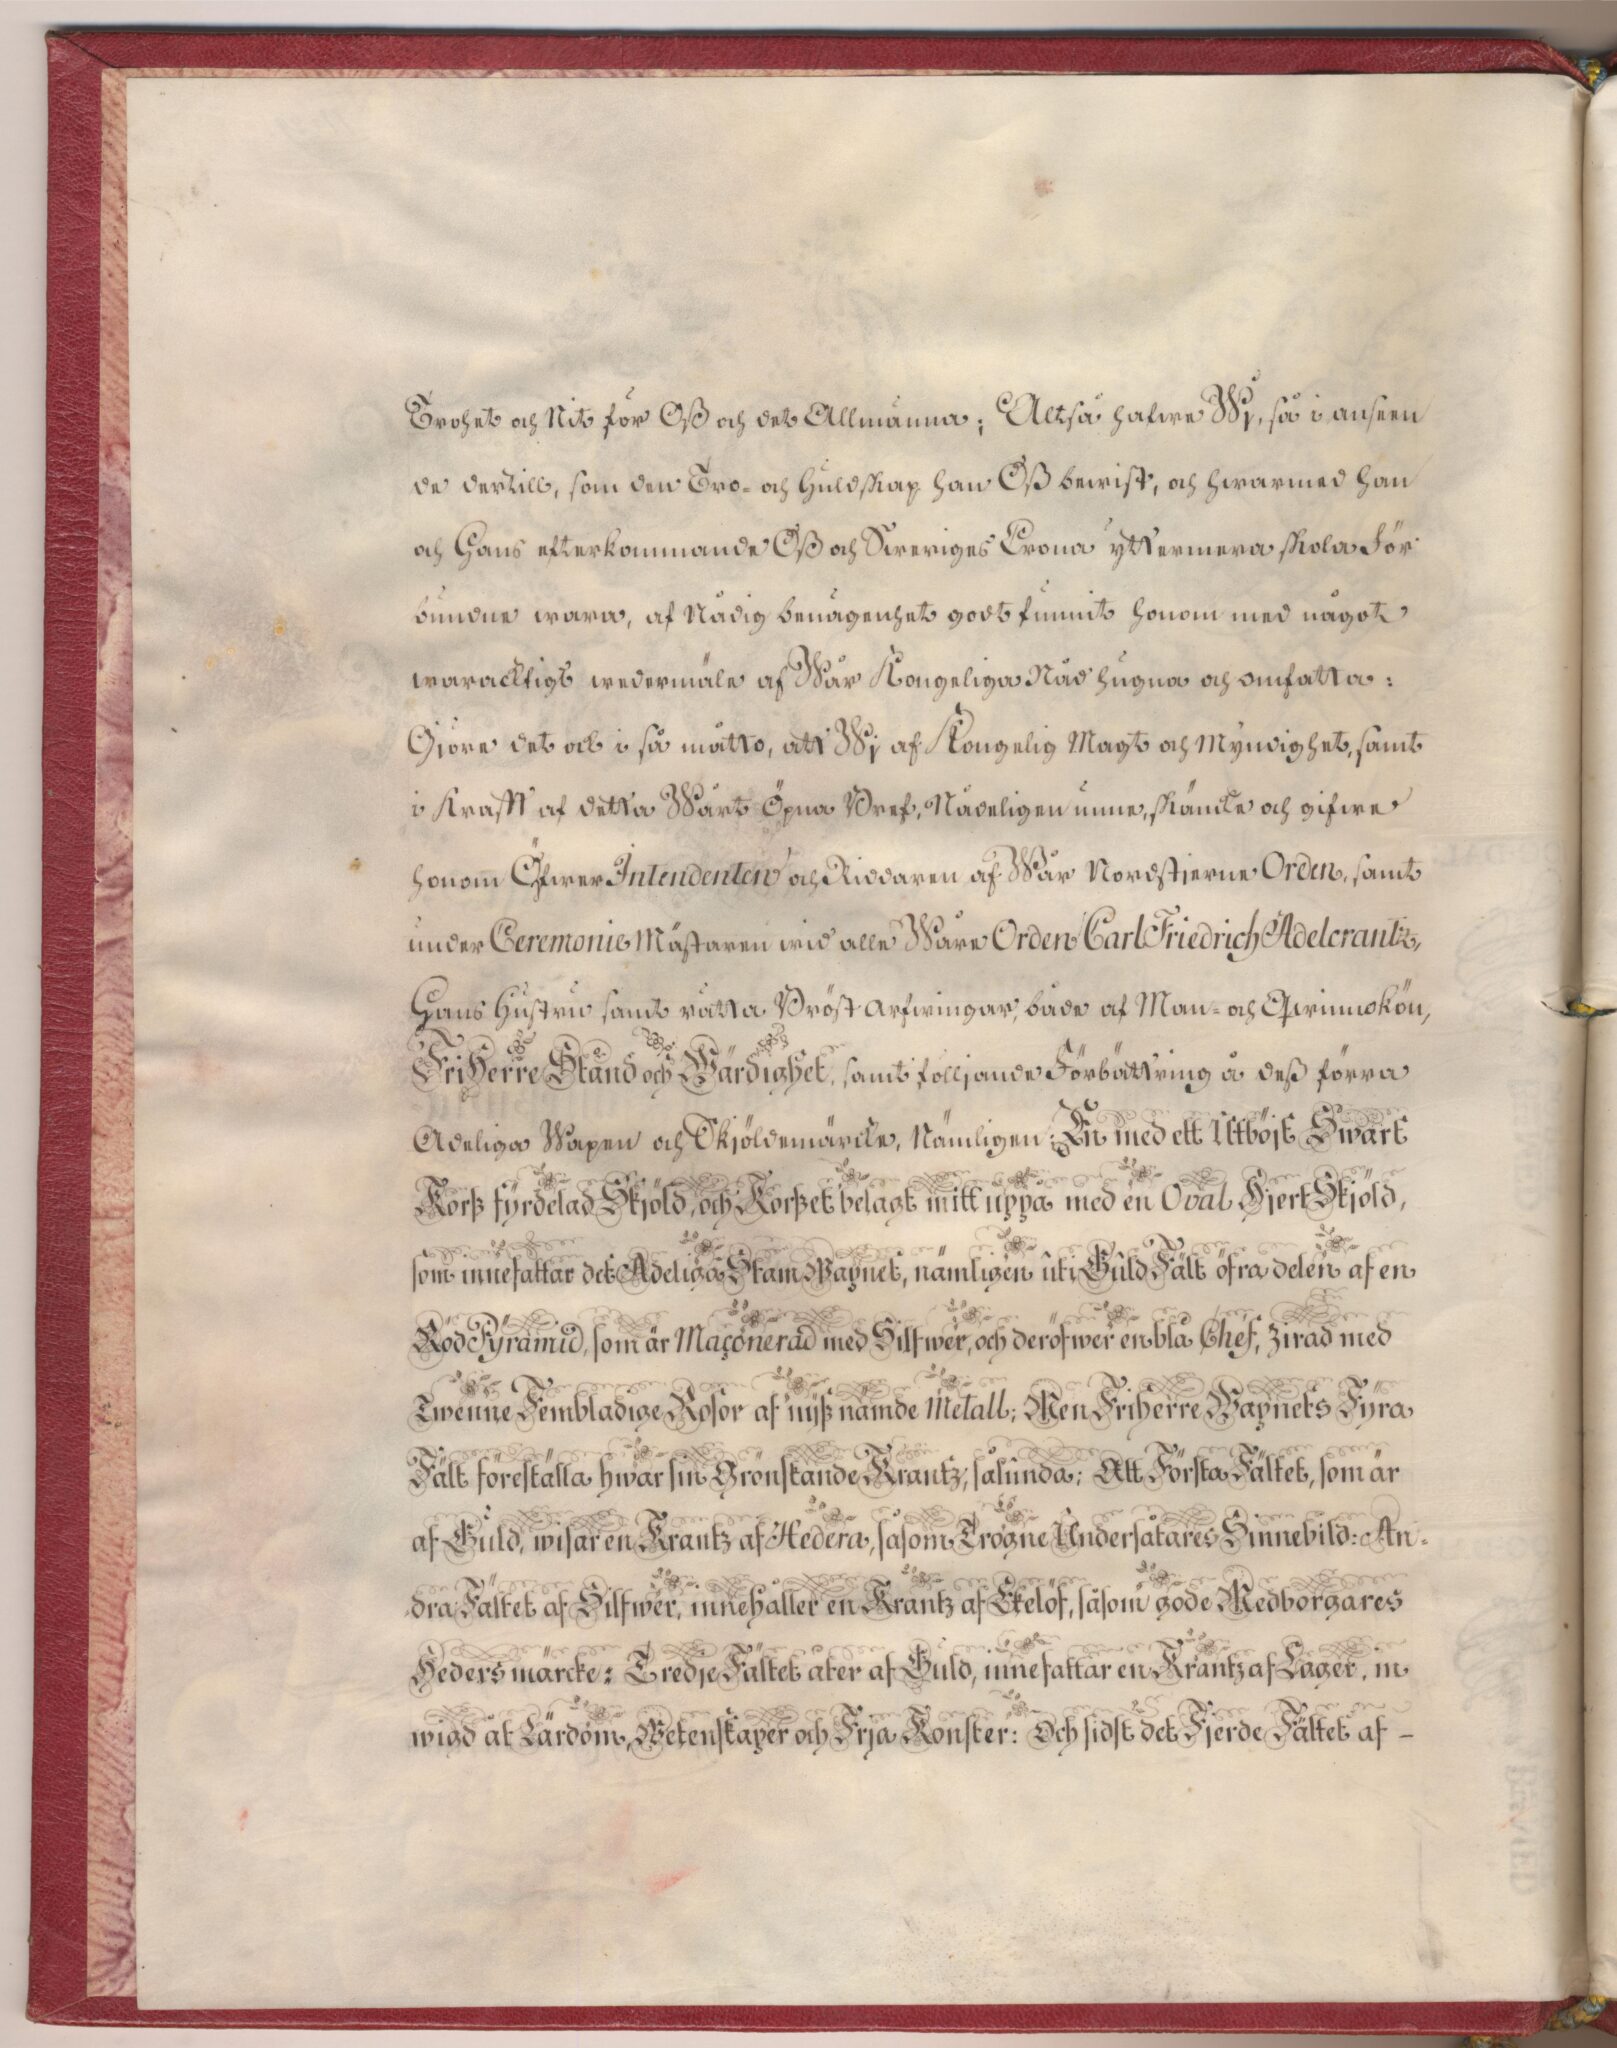 Trohet och Nit för Oß och det Allmänna; Altså hafwe Wj, så i anseen
de dertill, som den Tro- och Huldskap han Oß bewist, och hwarmed han
och Hans efterkommande Oß och Sweriges Crona yttermera skola För
bundne wara, af Nådig benägenhet godt funnit honom med något
warachtigt wedermäle af Wår Kongeliga Nåd hugna och omfatta:
Giöre det ock i så måtto, att Wj af Kongelig Magt och Myndighet, samt
i Krafft af detta Wårt Öpna Bref, Nådeligen unne, skäncke och gifwe
honom Öfwer Intendenten och Riddaren af Wår Nordstjerne Orden, samt
under Ceremonie Mästaren wid alle Wåre Orden Carl Friedrich Adelcrantz,
Hans Hustru samt rätta Bröst Arfwingar, både af Man- och Qwinnokön,
FriHerre Stånd och Wärdighet, samt följjande Förbättring å deß förra
Adeliga Wapen och Skjöldemärcke, Nämligen: En med ett Utböjt Swart
Korß fyrdelad Skjöld, och Korßet belagt mitt uppå med en Oval HjertSkjöld,
som innefattar det Adeliga StamWapnet, nämligen uti Guld Fält öfra delen af en
Röd Pyramid, som är Maçonerad med Silfwer, och deröfwer en blå Chef, zirad med
Twenne Fembladige Rosor af nyß nämde Metall; Men Friherre Wapnets Fyra
Fält föreställa hwar sin Grönskande Krantz, sålunda: Att Första Fältet, som är
af Guld, wisar en Krantz af Hedera, såsom Trogne Undersåtares Sinnebild: An-
dra Fältet af Silfwer, innehåller en Krantz af Ekelöf, såsom gode Medborgares
Hedersmärcke: Tredje Fältet åter af Guld, innefattar en Krantz af Lager, in
wigd åt Lärdom, Wetenskaper och Frja Konster: Och sidst det Fjerde Fältet af -